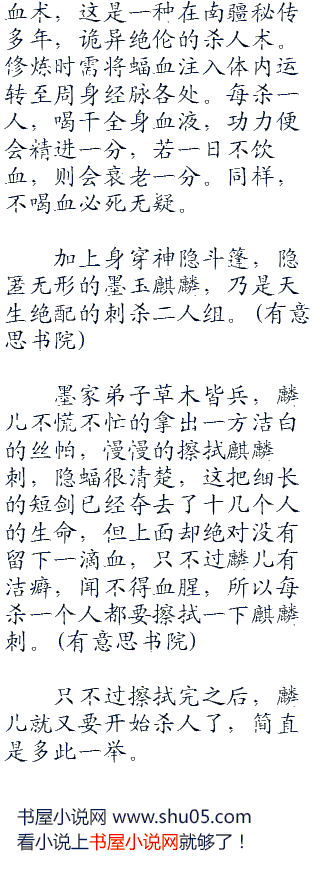 血术，这是一种在南疆秘传
多年，诡异绝伦的杀人术。
修炼时需将蝠血注入体内运
转至周身经脉各处。每杀一
人，喝干全身血液，功力便
会精进一分，若一日不饮
血，则会衰老一分。同样，
不喝血必死无疑。
加上身穿神隐斗篷，隐
匿无形的墨玉麒麟，乃是天
生绝配的刺杀二人组。(有意
思书院)
墨家弟子草木皆兵，麟
儿不慌不忙的拿出一方洁白
的丝帕，慢慢的擦拭麒麟
刺，隐蝠很清楚，这把细长
的短剑已经夺去了十几个人
的生命，但上面却绝对没有
留下一滴血，只不过麟儿有
洁癖，闻不得血腥，所以每
杀一个人都要擦拭一下麒麟
刺。(有意思书院)
只不过擦拭完之后，麟
儿就又要开始杀人了，简直
是多此一举。
书屋小说网 www.shu05.com
看小说上书屋小说网就够了！